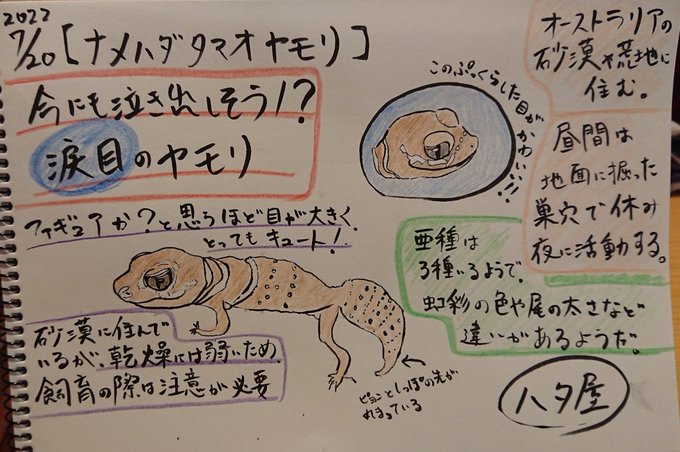 2022
7/20【ナメハダタマオヤモリ】
今にも泣き出しそう!?
涙目のヤモリ
このぷっくらした目がかわいい!!
オーストラリアの
砂漠や荒地に
住む。
昼間は
地面に掘った
巣穴で休み
夜に活動する。
ファギュアか?と思うほど目が大きく、
とってもキュート!
亜種は
3種いるようで、
虹彩の色や尾の太さなど
違いがあるようだ。
砂漠に住んで
いるが、乾燥には弱いため
飼育の際は注意が必要
ピョンとしっぽの先が
れまっている
ハタ屋